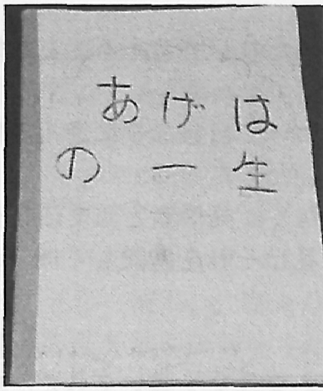 あげは
の一生